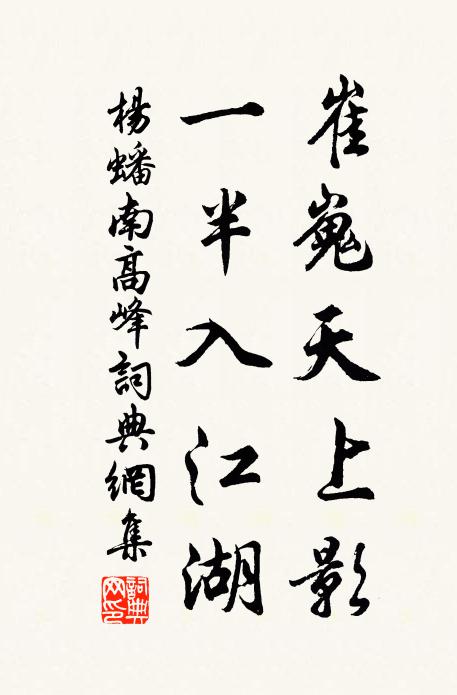 崔嵬天上影
一半入江湖
楊蟠南高峰詞典網集
詞典網印